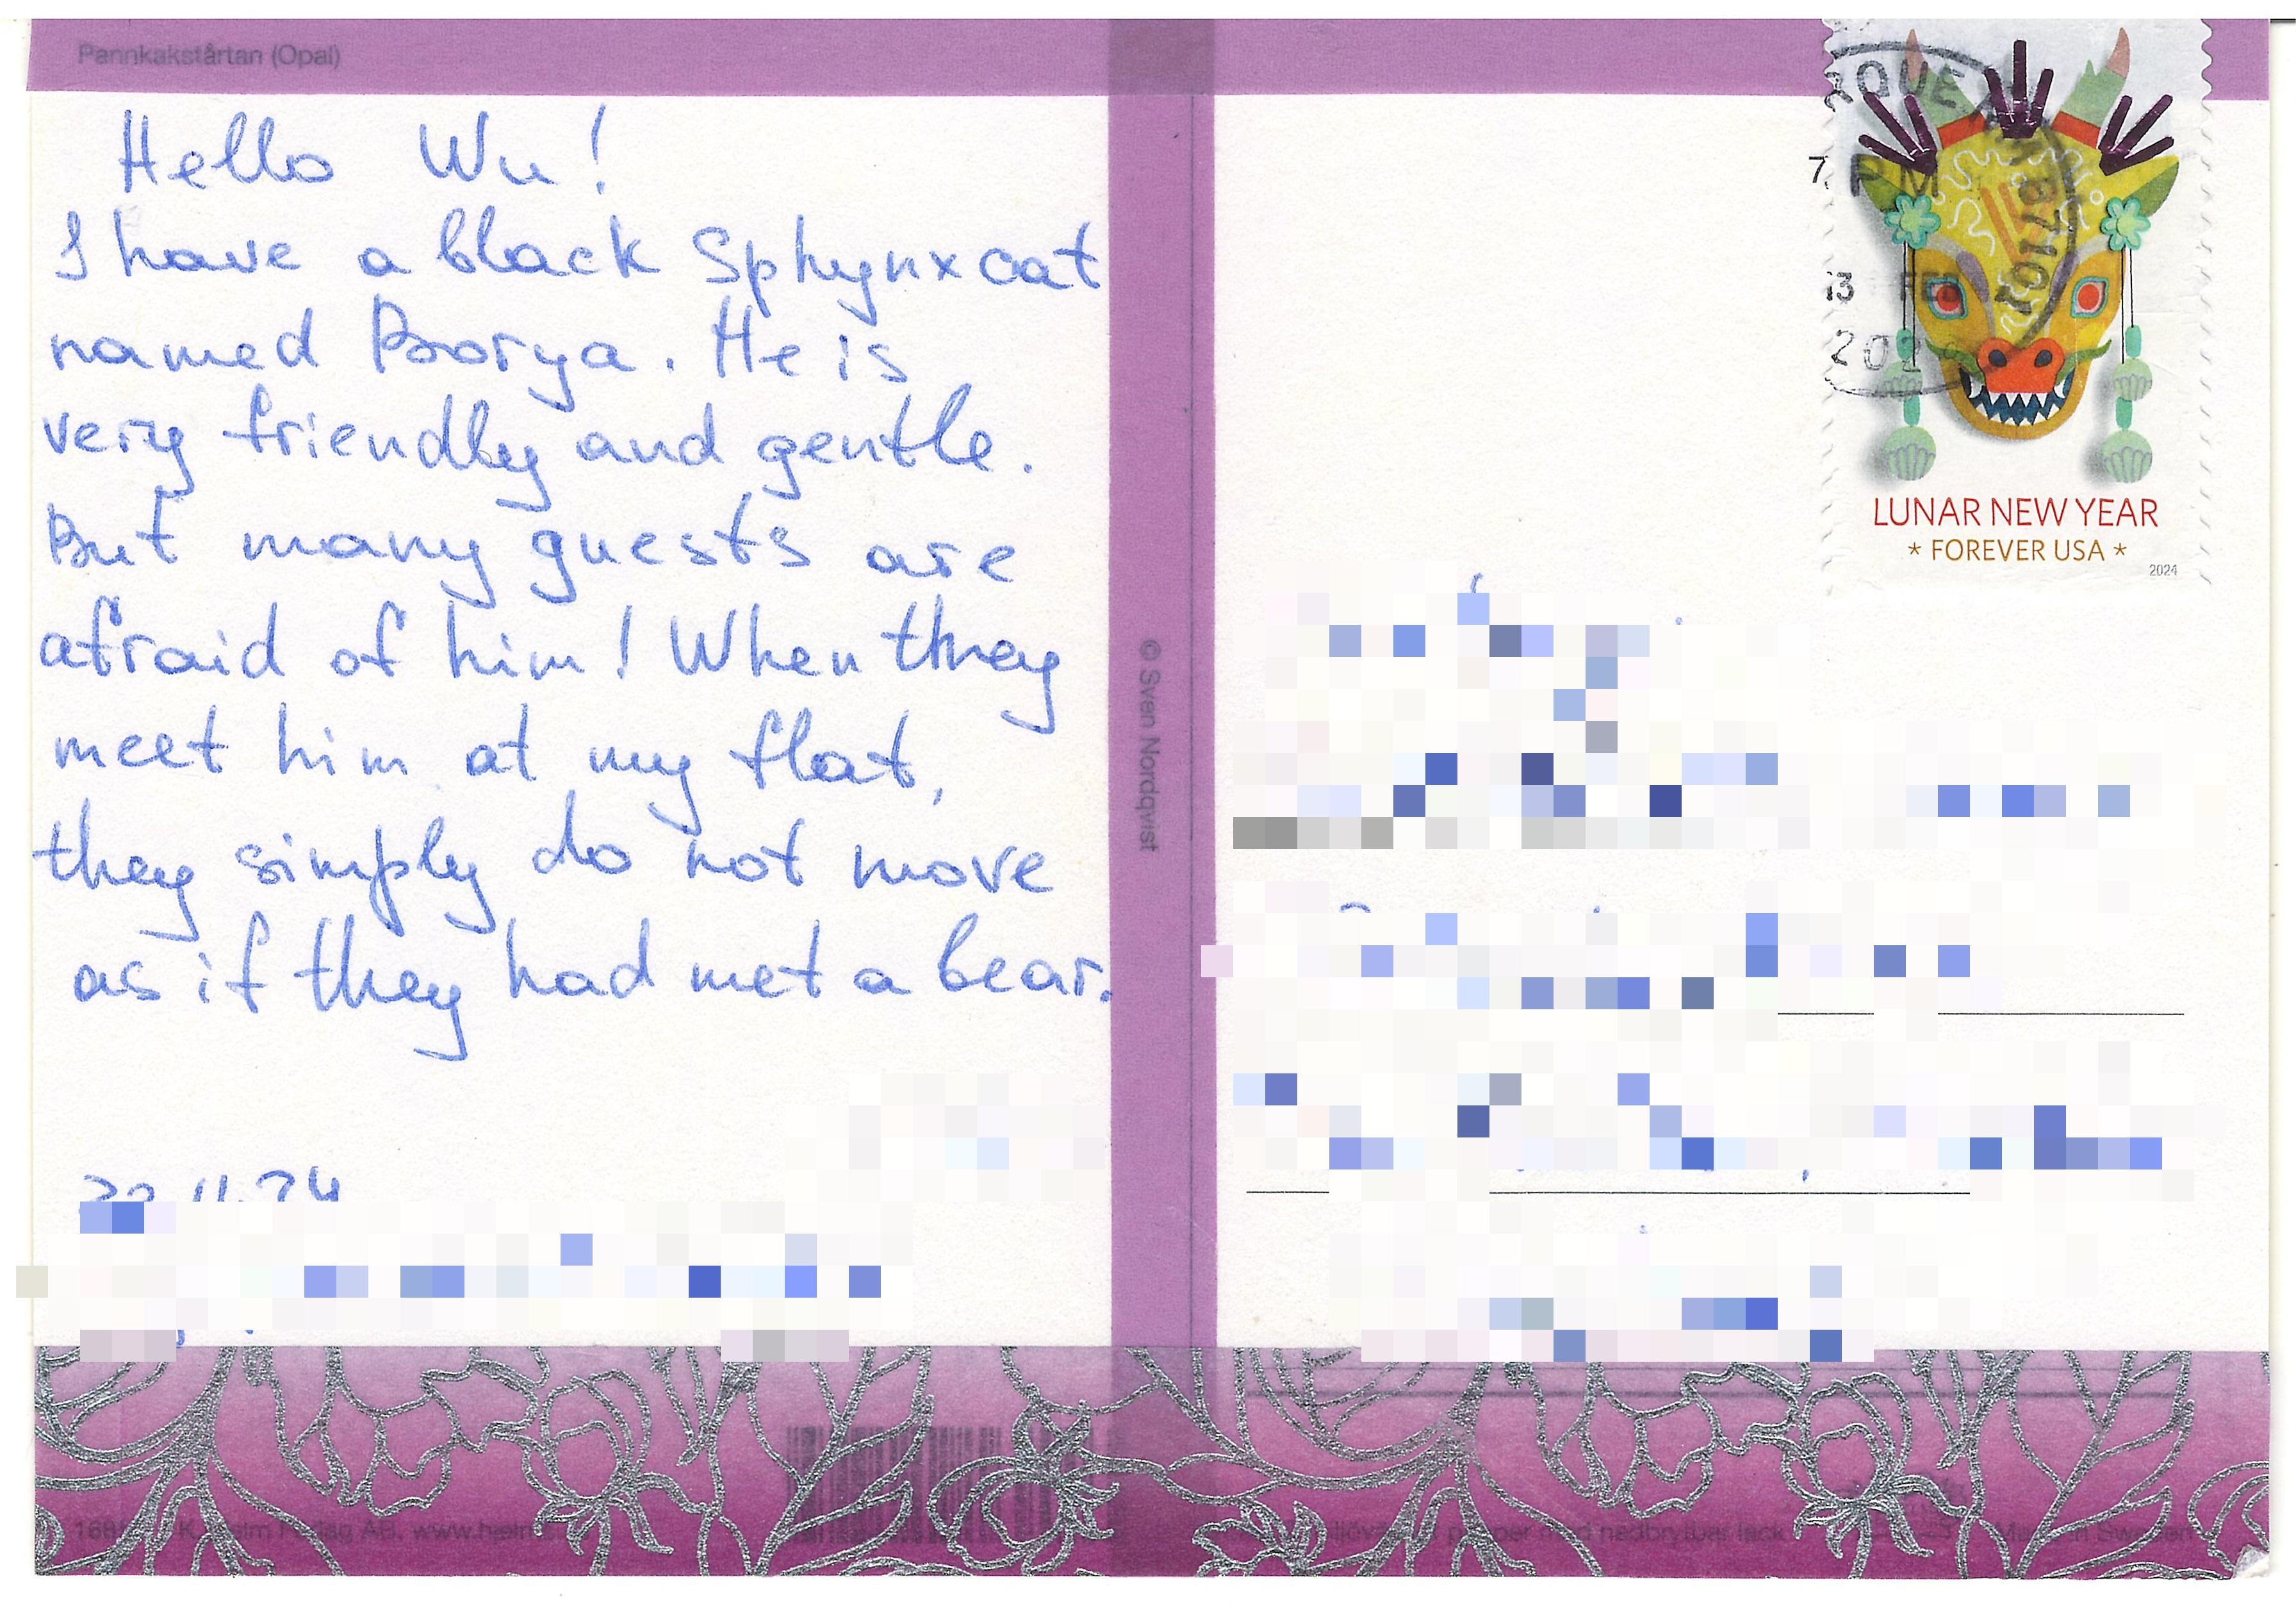 Pannkakstårtan (Opal)
Hello Wu!
I have a black Sphynx cat
named Borya. He is
very friendly and gentle.
But many guests are
afraid of him! When they
meet him at my flat,
they simply do not move
as if they had met a bear.
© Sven Nordqvist
7 PM
13 FEB
LUNAR NEW YEAR
* FOREVER USA *
2024
AB, www.hjelm
Sweden